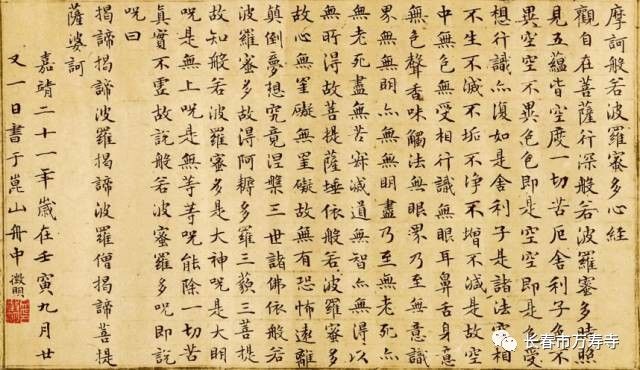 摩訶般若波羅蜜多心經
觀自在菩薩行深般若波羅蜜多時照
見五蘊皆空度一切苦厄舍利子色不
異空空不異色色即是空空即是色受
想行識亦復如是舍利子是諸法空相
不生不滅不垢不淨不增不減是故空
中無色無受想行識無眼耳鼻舌身意
無色聲香味觸法無眼界乃至無意識
界無無明亦無無明盡乃至無老死亦
無老死盡無苦集滅道無智亦無得以
無所得故菩提薩埵依般若波羅蜜多
故心無罣礙無罣礙故無有恐怖遠離
顛倒夢想究竟涅槃三世諸佛依般若
波羅蜜多故得阿耨多羅三藐三菩提
故知般若波羅蜜多是大神呪是大明
呪是無上呪是無等等呪能除一切苦
眞實不虛故說般若波蜜羅多呪即說
呪曰
揭諦揭諦波羅揭諦波羅僧揭諦菩提
薩婆訶
嘉靖二十一年歲在壬寅九月廿
又一日書于崑山舟中 徵明
长春市万寿寺